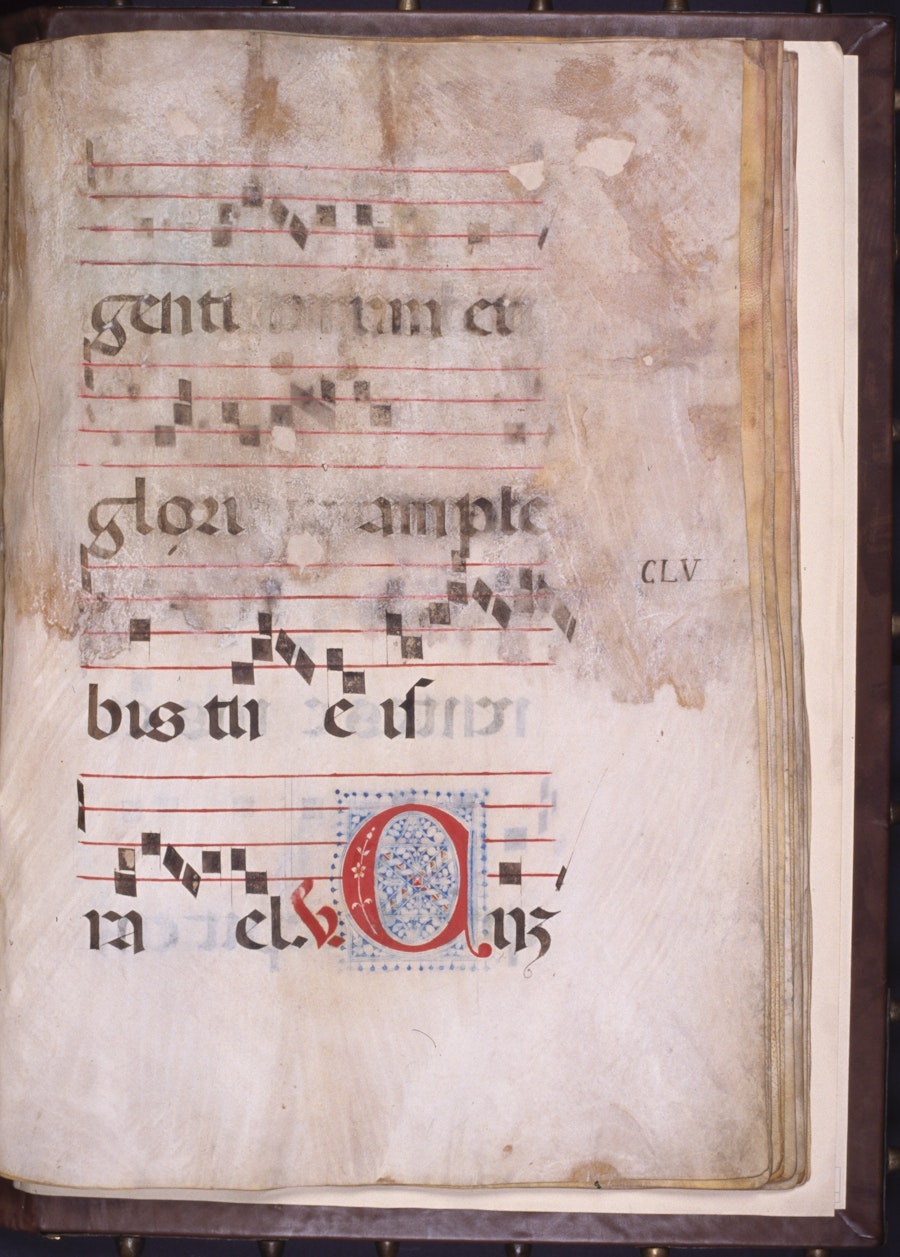 genti um et
glori am ple
CLV
bis tu e is
ra el. V.